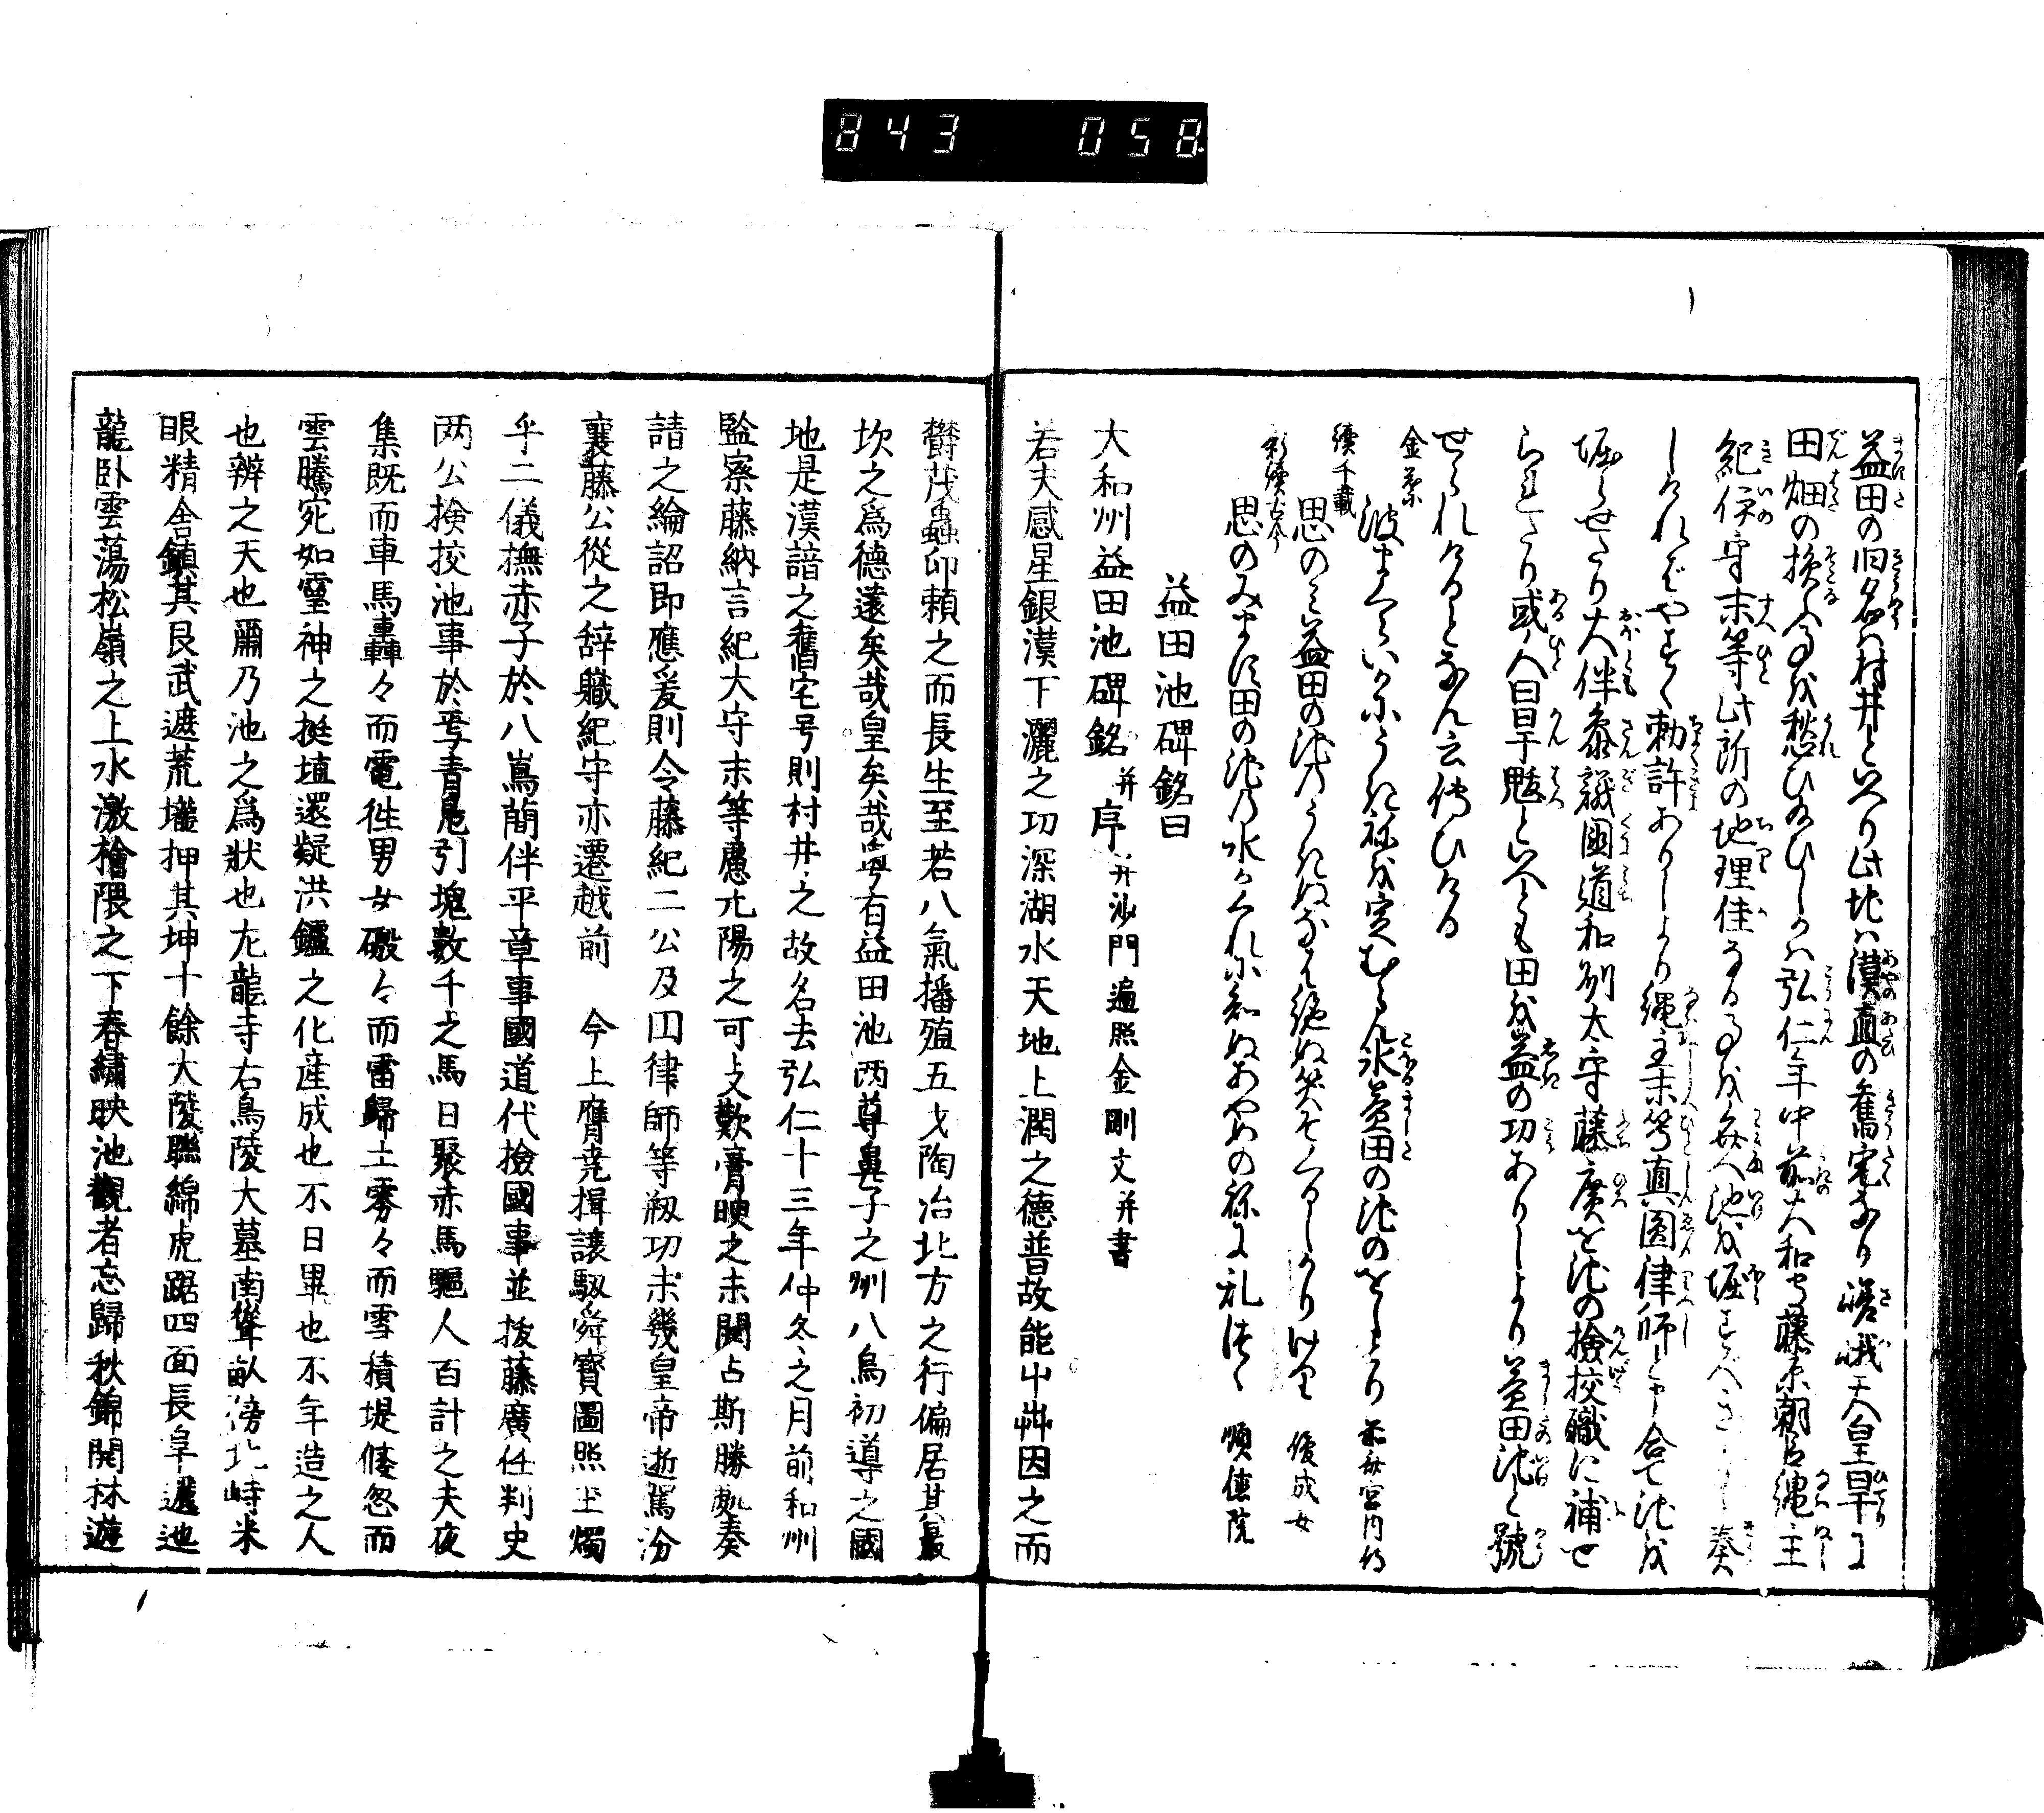 843 058
益田の旧名ハ村井といへり此地ハ漢直の舊宅なり嵯峨天皇旱に
田畑の損ふるを愁ひ給ひしかハ弘仁年中前大和守藤原朝臣縄主
紀伊守末等此所の地理佳なる事を
しけれバやすく勅許ありしより縄主末等真圓律師と合て池を
堀らせたり大伴参議國道和州太守藤廣を池の撿挍職に補せ
られたり或人曰旱魃といへとも田を益の功ありしより益田池と號
せられけるとなん云傳ひける
金葉
波まくらいかにうきねを定むらん氷益田の池のをしとり 前斎宮内侍
續千載
思のミ益田の池のうきぬなは絶ぬ 俊成女
新續古今
思のみます田の池の水かくれに知ぬあやめの祢に乱つゝ 順徳院
益田池碑銘曰
大和州益田池碑銘并序并沙門遍照金剛文并書
若夫感星銀漢下灑之功深湖水天地上潤之德普故能屮艸因之而
欝茂蟲卵頼之而長生至若八氣播殖五才陶冶北方之行偏居其最
坎之為德遠矣哉皇矣哉粤有益田池两尊鼻子之州八烏初導之國
地是漢諳之舊宅号則村井之故名去弘仁十三年仲冬之月前和州
監察藤納言紀大守末等慮亢陽之可支歎膏腴之未開占斯勝處奏
請之綸詔即應爰則令藤紀二公及圓律師等剏功未幾皇帝逝駕汾
襄藤公從之辞職紀守亦遷越前 今上膺堯揖讓馭舜寳圖照玉燭
乎二儀撫赤子於八嶌簡伴平章事國道代撿國事並拔藤廣任判史
两公撿挍池事於焉青凫引塊數千之馬日聚赤馬驅人百計之夫夜
集既而車馬轟々而電徃男女磤々而雷歸土雰々而雪積堤倏忽而
雲騰宛如靈神之挻埴還疑洪鑪之化産成也不日畢也不年造之人
也辨之天也爾乃池之為狀也左龍寺右鳥陵大墓南聳畝傍北峙米
眼精舎鎮其艮武遮荒壠押其坤十餘大陵聯綿虎踞四面長阜邐迤
龍卧雲蕩松嶺之上水激檜隈之下春繍映池觀者忘歸秋錦開林遊